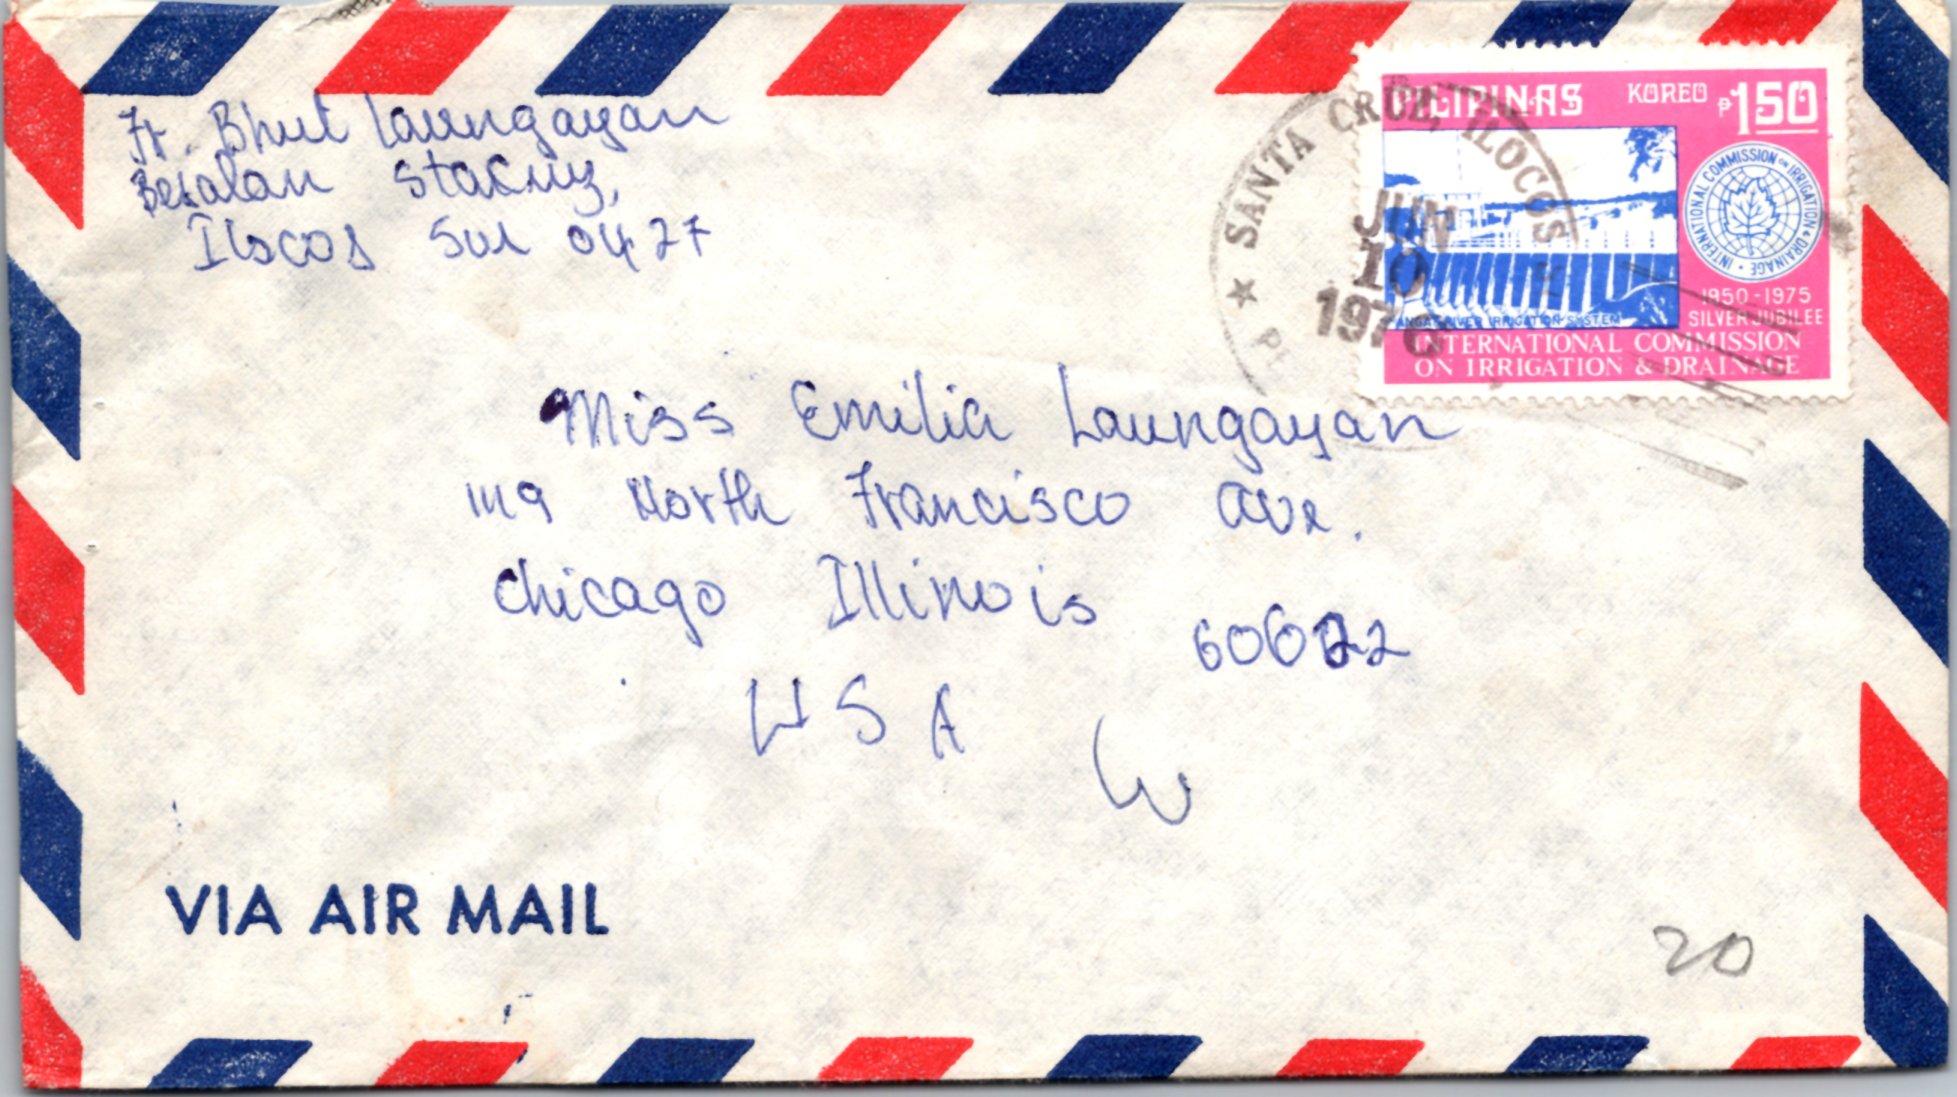 Fr. Bhut Laungayan
Besalan StaCruz,
Ilocos Sur 0427
PILIPINAS KOREO P150
SANTA CRUZ, ILOCOS S
JUN
10
1976
INTERNATIONAL COMMISSION ON IRRIGATION & DRAINAGE
1950-1975
SILVER JUBILEE
ANGAT RIVER IRRIGATION SYSTEM
INTERNATIONAL COMMISSION
ON IRRIGATION & DRAINAGE
Miss Emilia Laungayan
1119 North Francisco Ave.
Chicago Illinois
60622
USA
VIA AIR MAIL
20